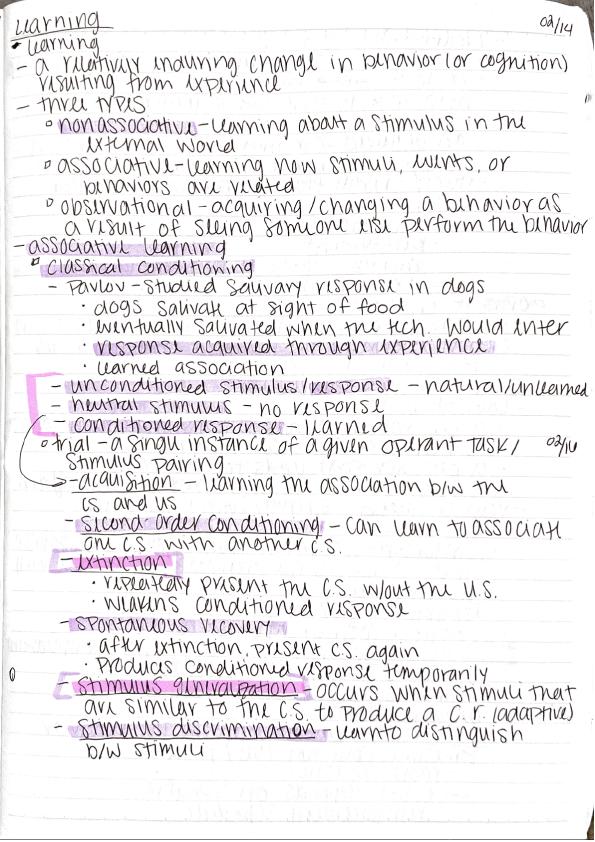 Learning 02/14
• learning
- a relatively enduring change in behavior (or cognition)
resulting from experience
- three types
▫ nonassociative - learning about a stimulus in the
external world
▫ associative - learning how stimuli, events, or
behaviors are related
▫ observational - acquiring/changing a behavior as
a result of seeing someone else perform the behavior
- associative learning
▫ classical conditioning
- Pavlov - studied salivary response in dogs
• dogs salivate at sight of food
• eventually salivated when the tech. would enter
• response acquired through experience
• learned association
- unconditioned stimulus/response - natural/unlearned
- neutral stimulus - no response
- conditioned response - learned
▫ trial - a single instance of a given operant task/ 02/16
stimulus pairing
→ - acquisition - learning the association b/w the
CS and US
- second order conditioning - can learn to associate
one C.S. with another C.S.
- extinction
• repeatedly present the C.S. w/out the U.S.
• weakens conditioned response
- spontaneous recovery
• after extinction, present CS. again
• Produces conditioned response temporarily
- stimulus generalization - occurs when stimuli that
are similar to the C.S. to produce a C.r. (adaptive)
- stimulus discrimination - learn to distinguish
b/w stimuli